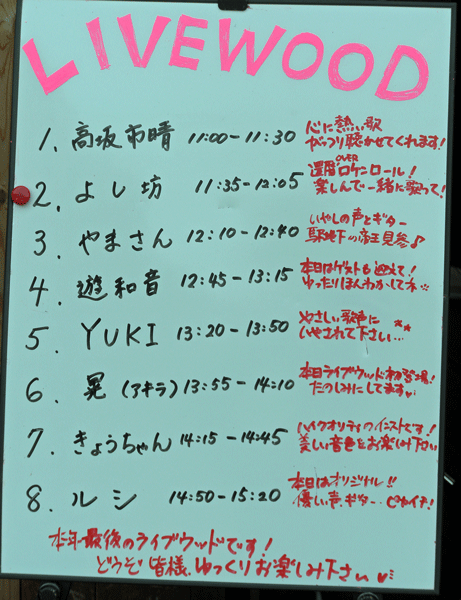 LIVEWOOD
1. 高坂市晴 11:00-11:30 心に熱い歌
がっつり聴かせてくれます!
2. よし坊 11:35-12:05 還暦OVERロケンロール!
楽しんで一緒に歌って!
3. やまさん 12:10-12:40 いやしの声とギター
駅地下の帝王見参♪
4. 遊和音 12:45-13:15 本日はゲストも迎えて!
ゆったりほんわかしてネ
5. YUKI 13:20-13:50 やさしい歌声に
いやされて下さい…
6. 晃(アキラ) 13:55-14:10 本日ライブウッド初登場!
たのしみにしてます
7. きょうちゃん 14:15-14:45 ハイクオリティのインストです!
美しい音色をお楽しみ下さい
8. ルシ 14:50-15:20 本日はオリジナル!!
優しい声、ギター、
本年最後のライブウッドです!
どうぞ皆様、ゆっくりお楽しみ下さい